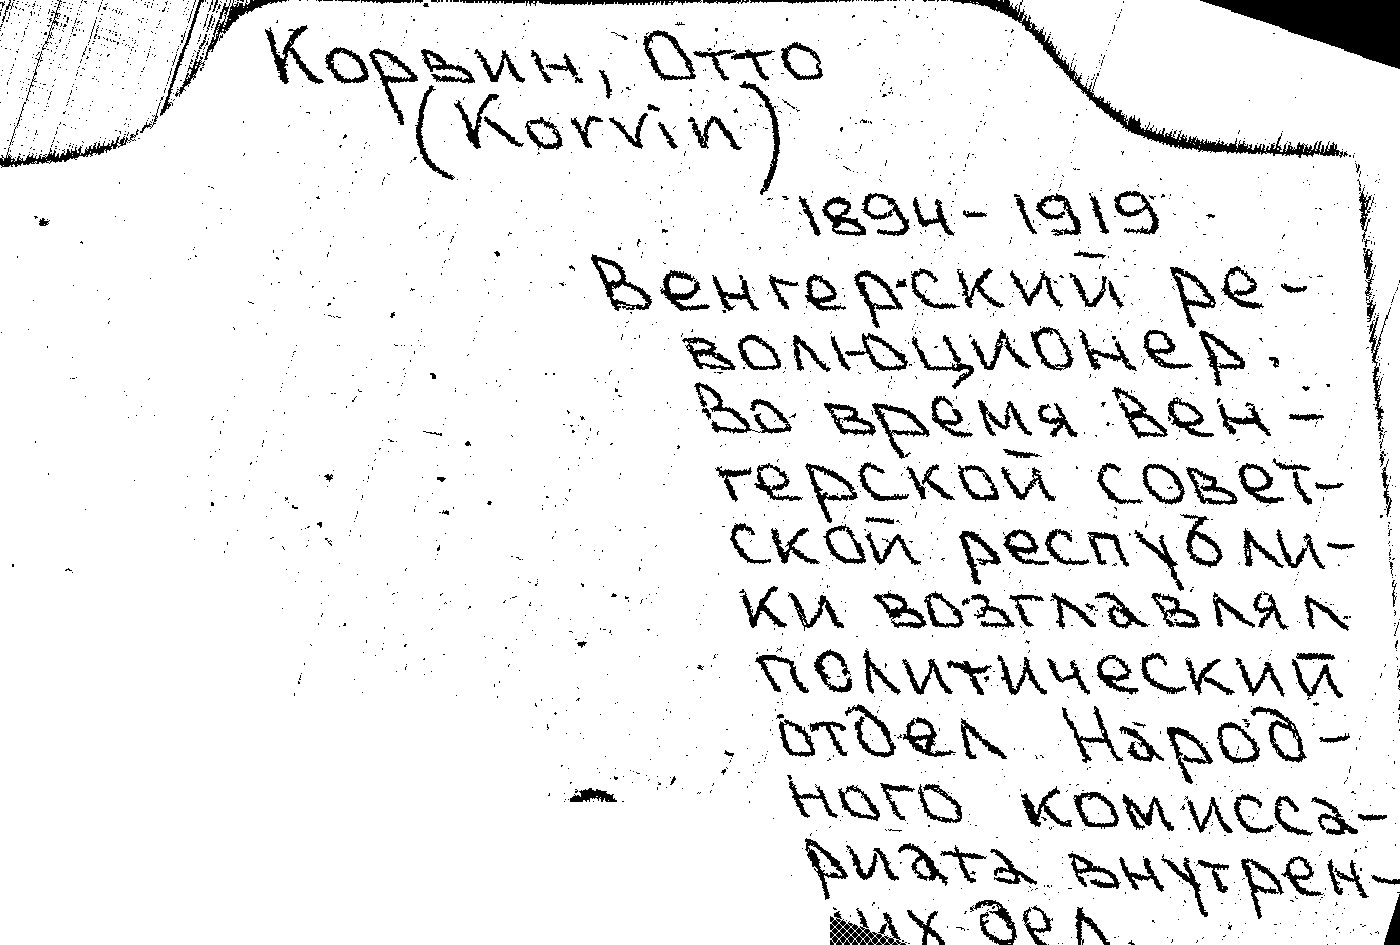 Корвин, Отто
(Korvin)
1894-1919
Венгерский ре-
волюционер.
Во время Вен-
герской совет-
ской республи-
ки возглавлял
политический
отдел Народ-
ного комисса-
риата внутрен-
них дел.